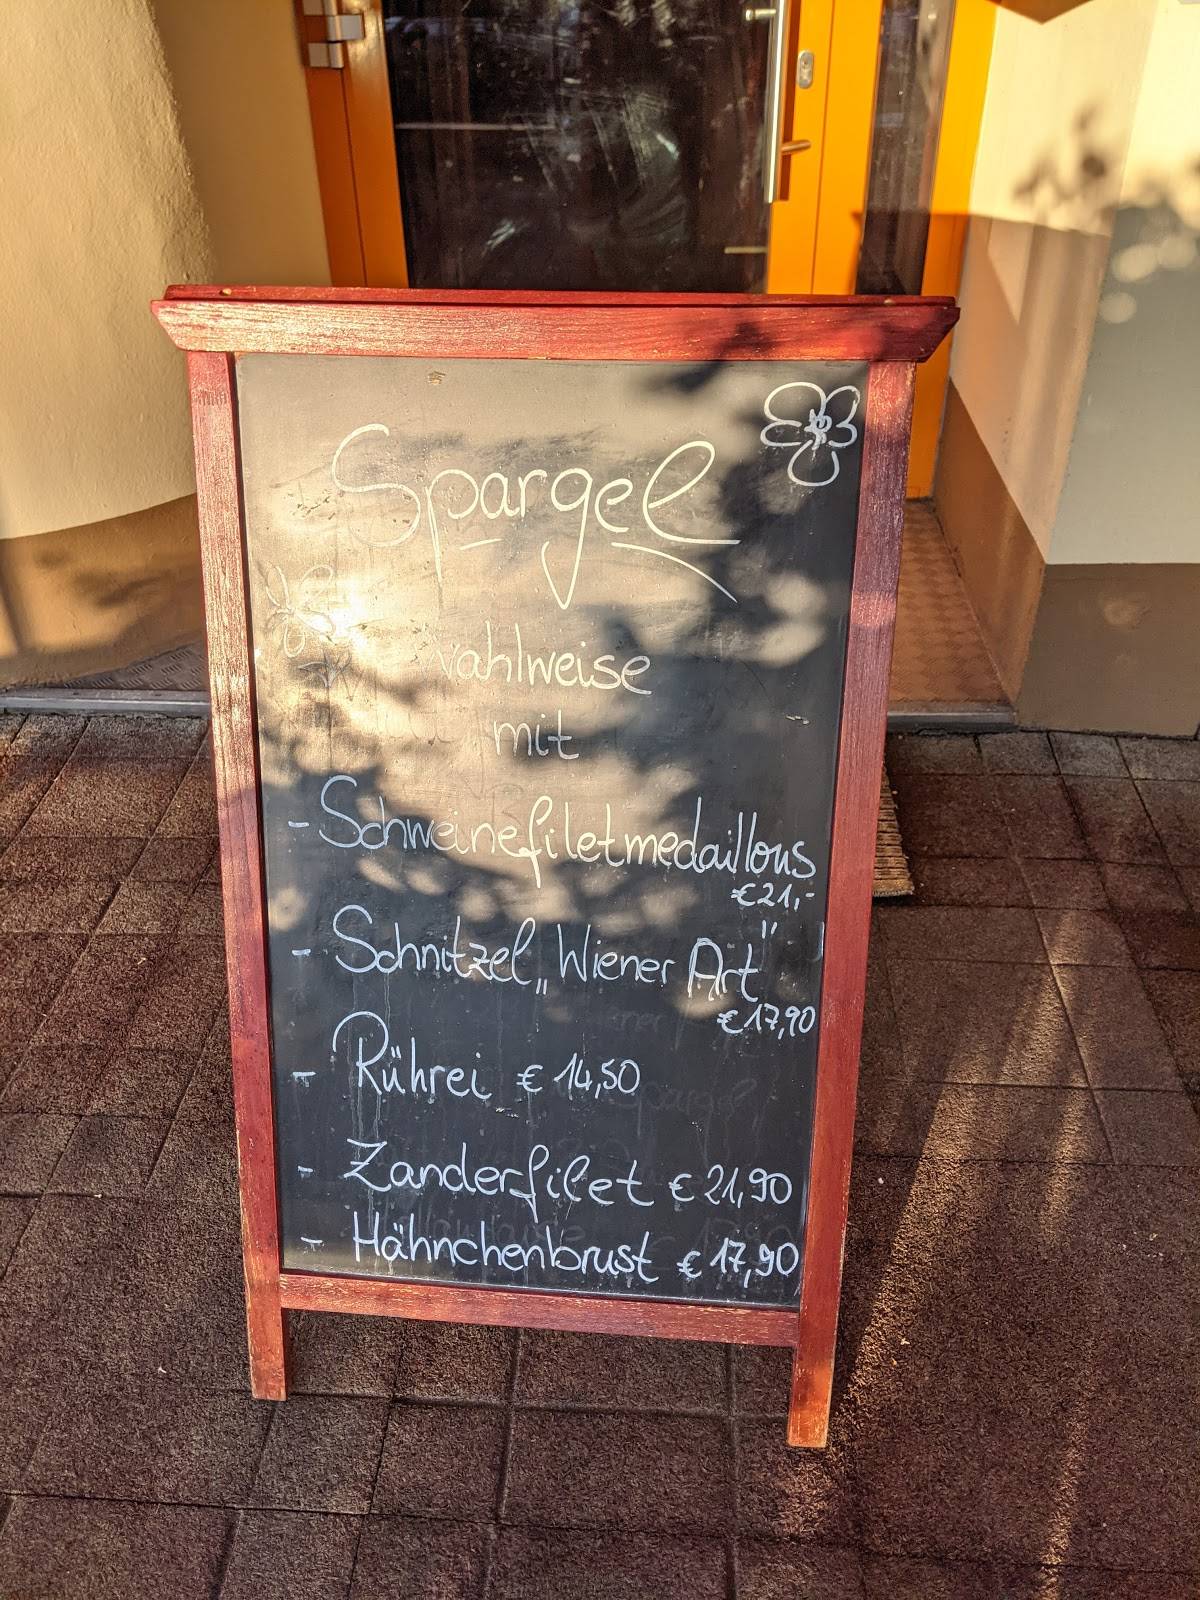 Spargel
wahlweise
mit
- Schweinefiletmedaillons
€ 21,-
- Schnitzel „Wiener Art"
€ 17,90
- Rührei € 14,50
- Zanderfilet € 21,90
- Hähnchenbrust € 17,90